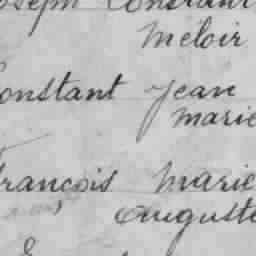 oseph Constant
Méloir
Constant Jean
Marie
François Marie
Auguste